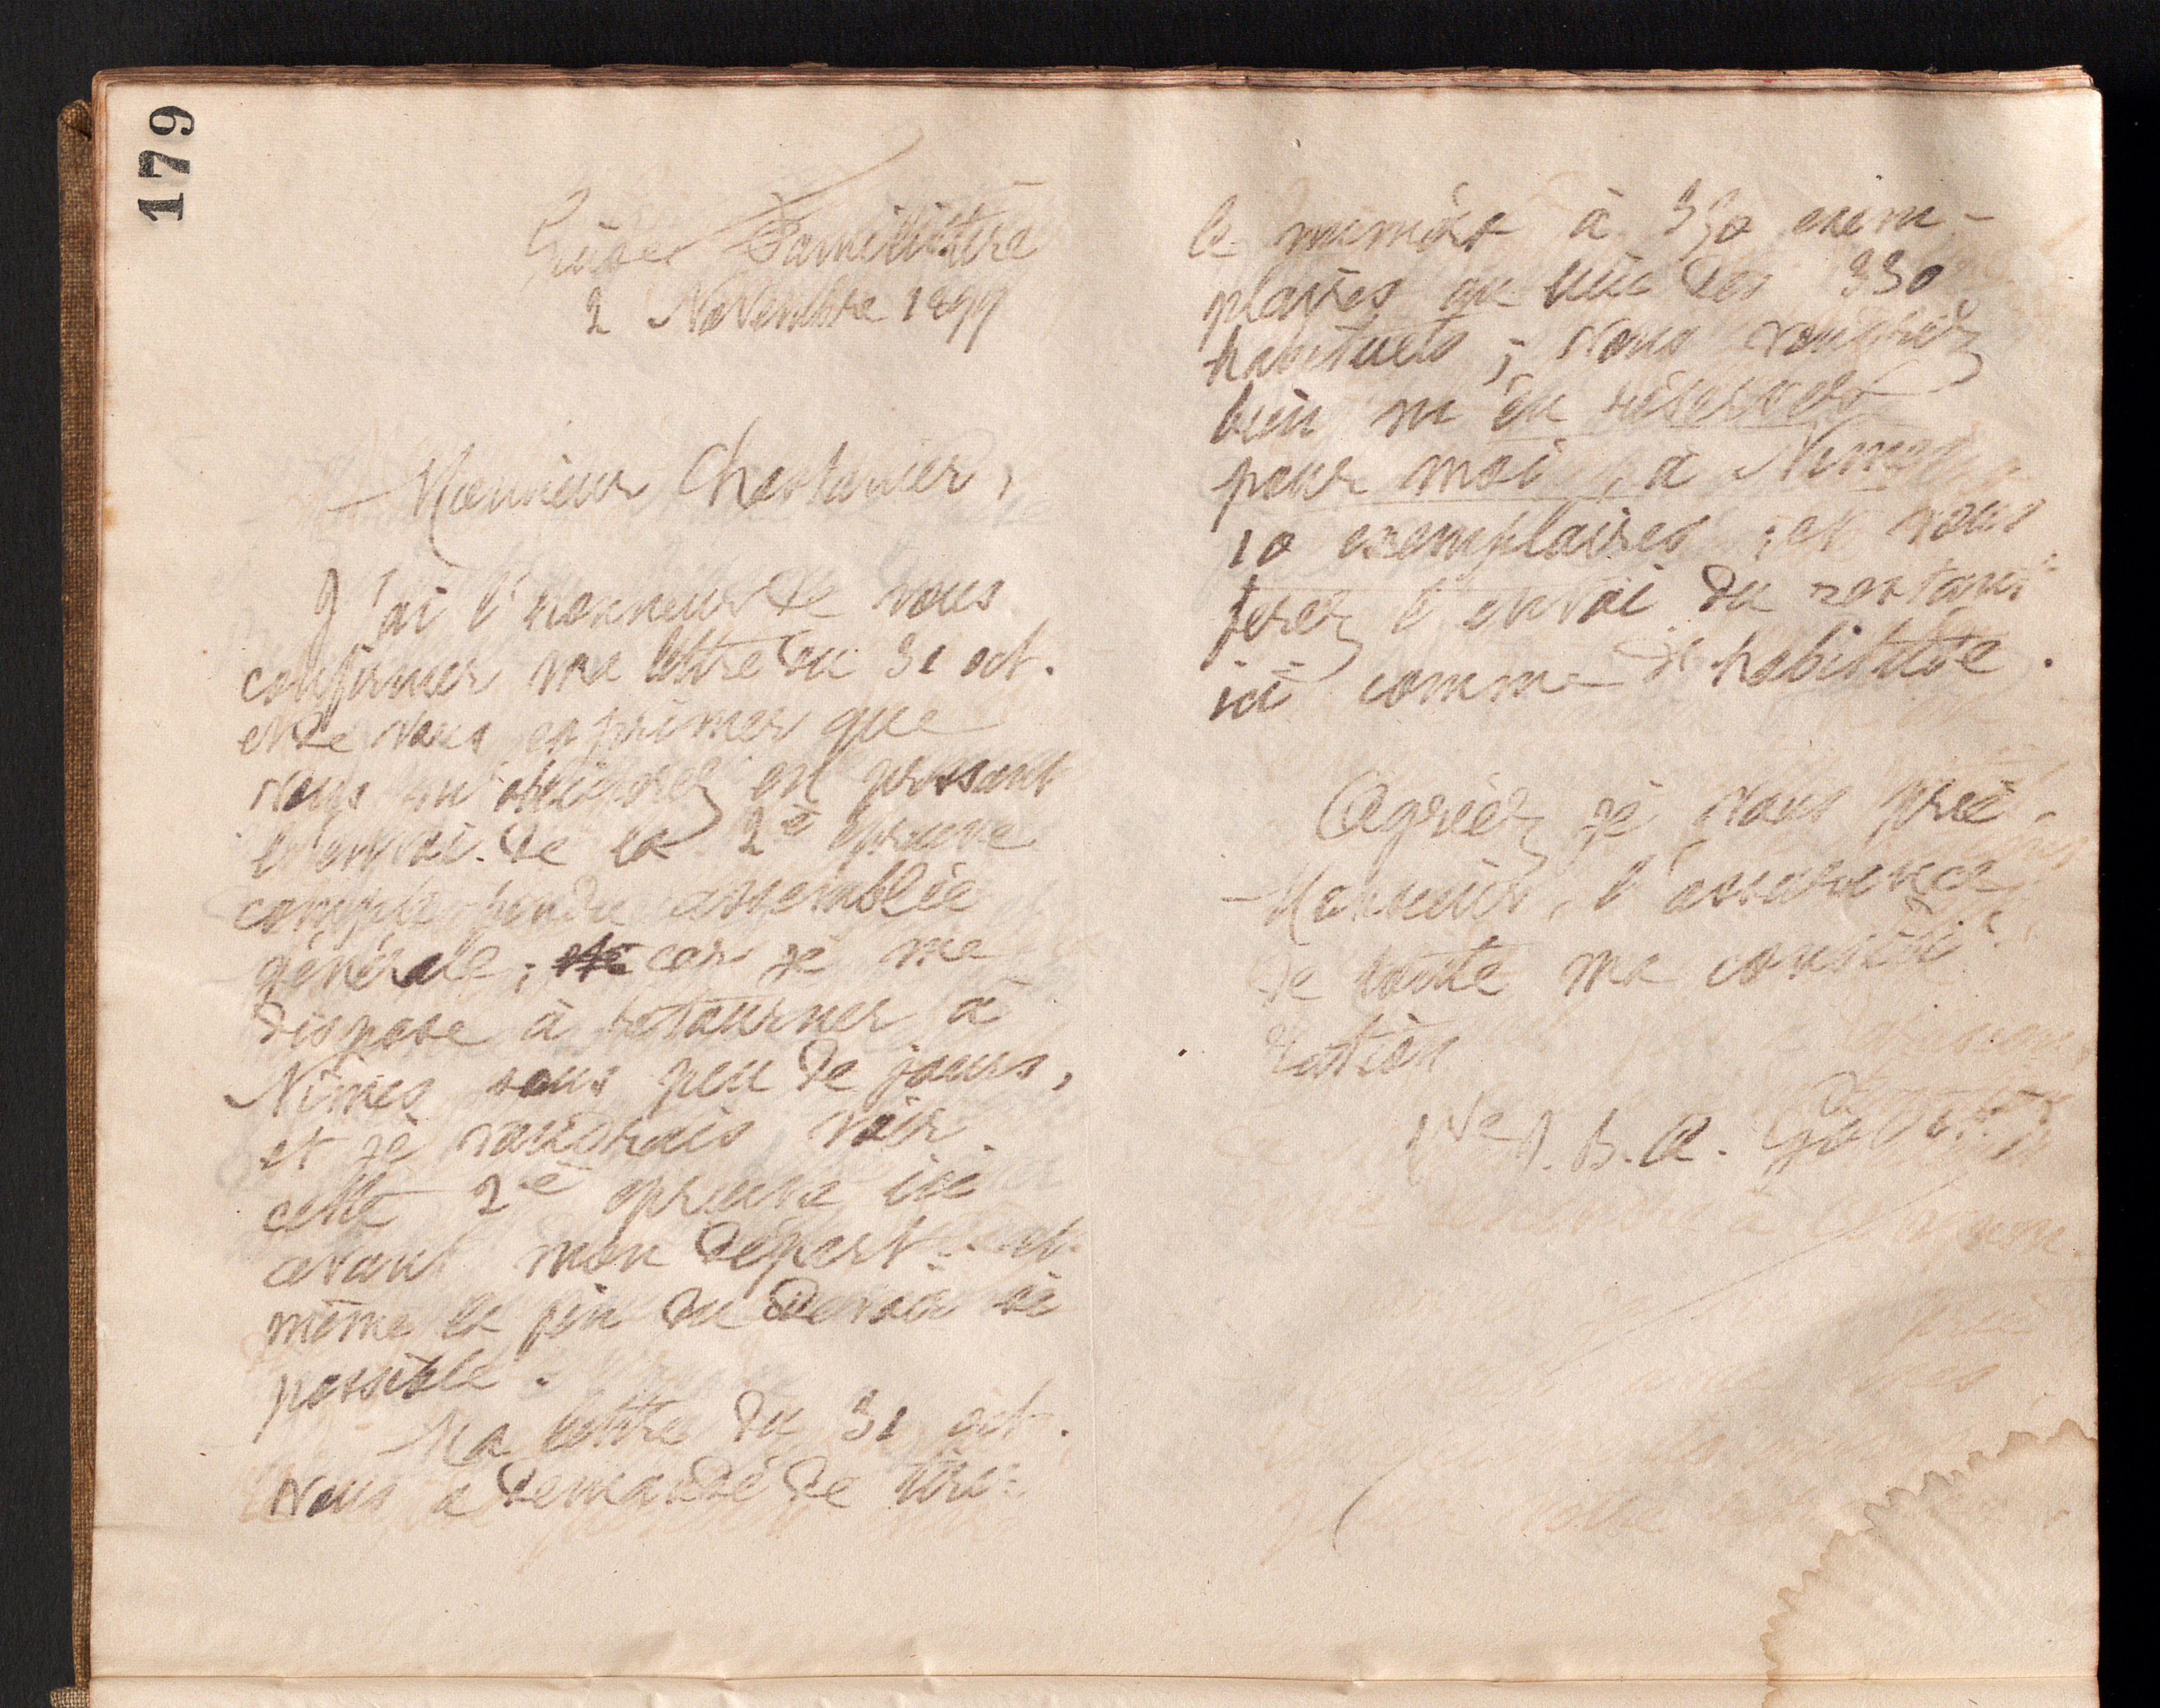 179
Guise Familistère
2 Novembre 1899
Monsieur Chastanier,
J'ai l'honneur de vous
confirmer ma lettre du 31 oct.
et de vous exprimer que
vous m'obligerez en pressant
l'envoi de la 2e épreuve
compte rendu assemblée
générale, car je me
dispose à retourner à
Nîmes sous peu de jours,
et je voudrais voir
cette 2e épreuve ici
avant mon départ et
même la fin du Devoir si
possible.
Ma lettre du 31 oct.
vous a demandé de tirer
le numéro à 350 exem-
plaires au lieu des 330
habituels ; vous voudrez
bien m'en réserver
pour moi, à Nîmes
10 exemplaires ; et vous
ferez l'envoi du restant
ici comme d'habitude.
Agréez je vous prie
Monsieur, l'assurance
de toute ma considé
ration
Vve J. B. A. Godin